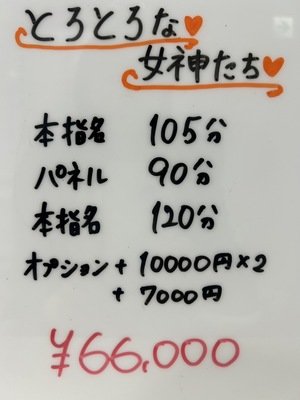 とろとろな♥
女神たち♥
本指名 105分
パネル 90分
本指名 120分
オプション + 10000円×2
+ 7000円
¥66,000